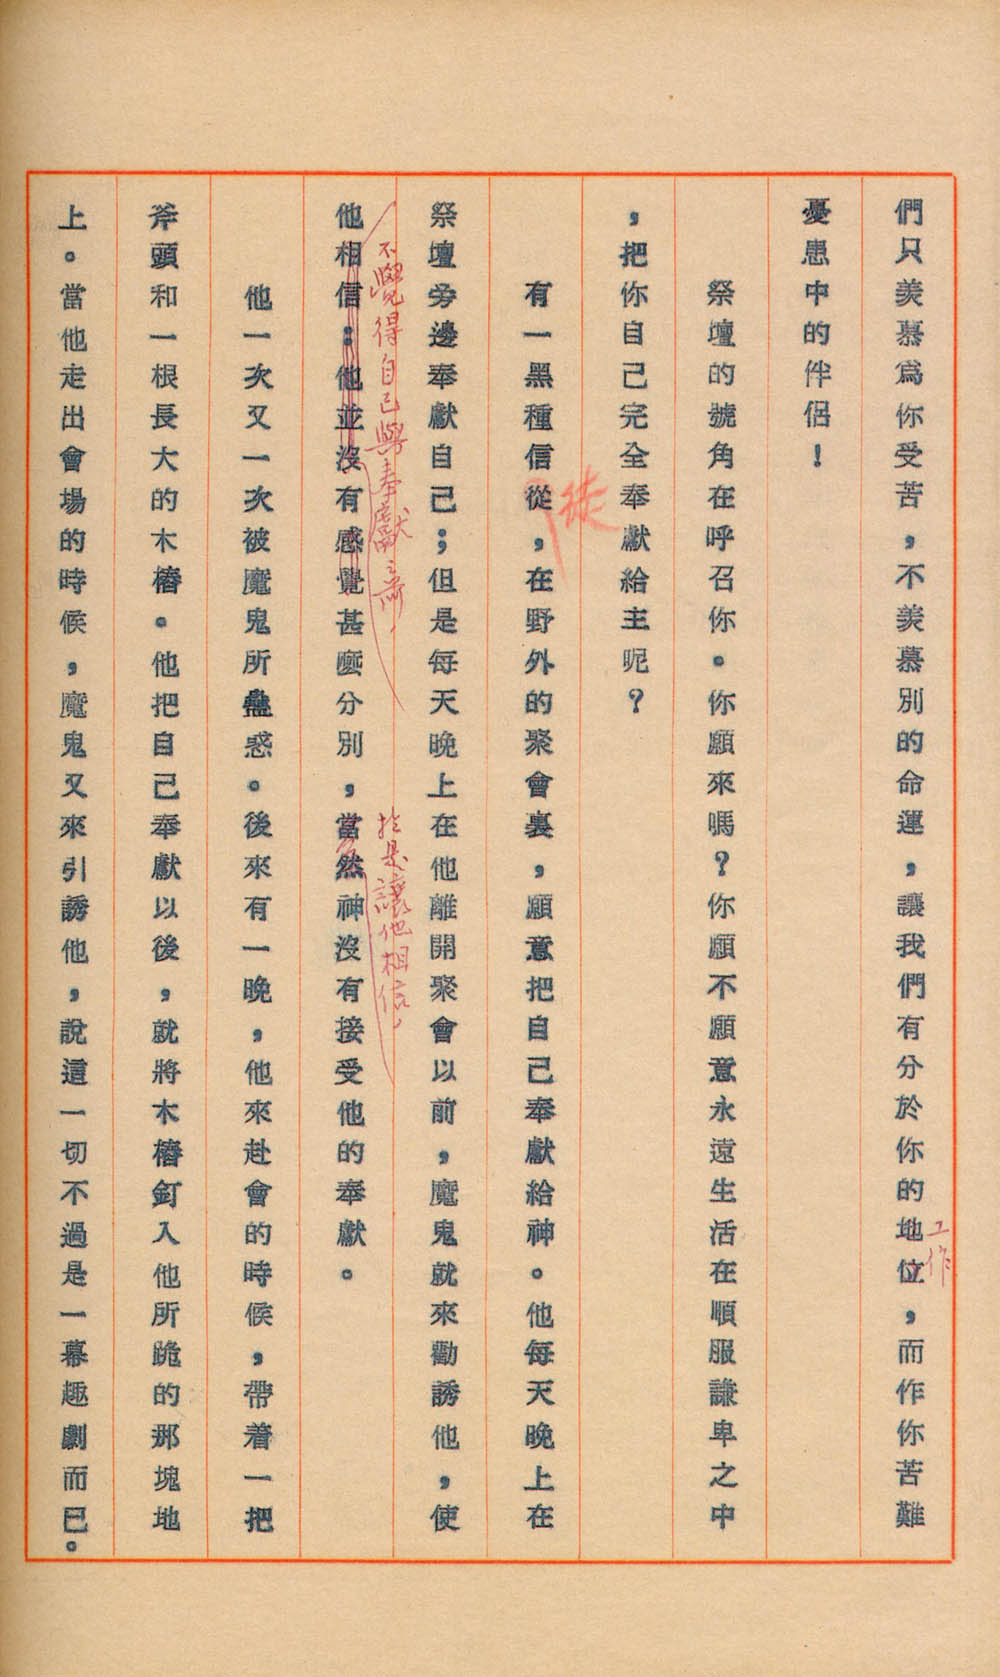 們只羨慕爲你受苦，不羨慕別的命運，讓我們有分於你的地位，而作你苦難
工作
憂患中的伴侶！
祭壇的號角在呼召你。你願來嗎？你願不願意永遠生活在順服謙卑之中
，把你自己完全奉獻給主呢？
徒
有一黑種信從，在野外的聚會裏，願意把自己奉獻給神。他每天晚上在
祭壇旁邊奉獻自己；但是每天晚上在他離開聚會以前，魔鬼就來勸誘他，使
不覺得自己與奉獻之前，
於是讓他相信，
他相信：他並沒有感覺甚麼分別，當然神沒有接受他的奉獻。
他一次又一次被魔鬼所蠱惑。後來有一晚，他來赴會的時候，帶着一把
斧頭和一根長大的木樁。他把自己奉獻以後，就將木樁釘入他所跪的那塊地
上。當他走出會場的時候，魔鬼又來引誘他，說這一切不過是一幕趣劇而已。